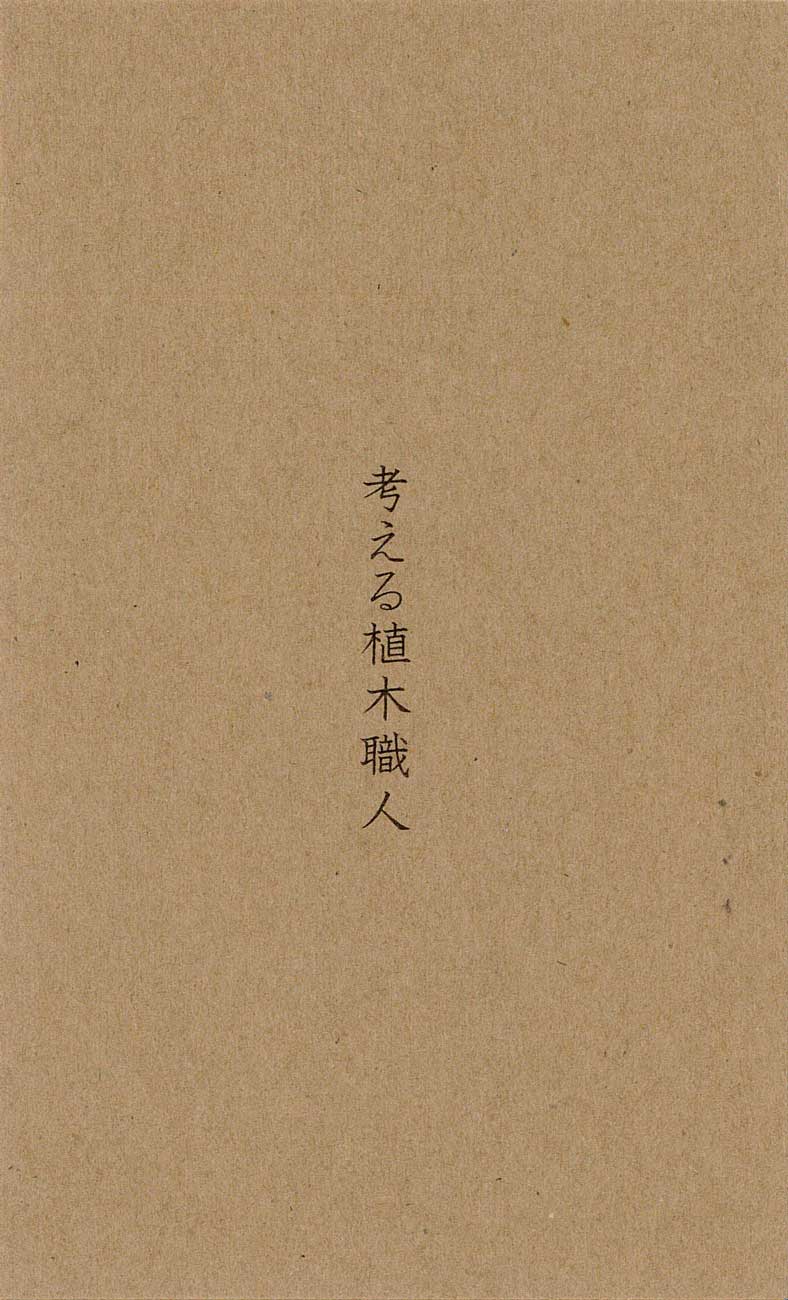 考える植木職人